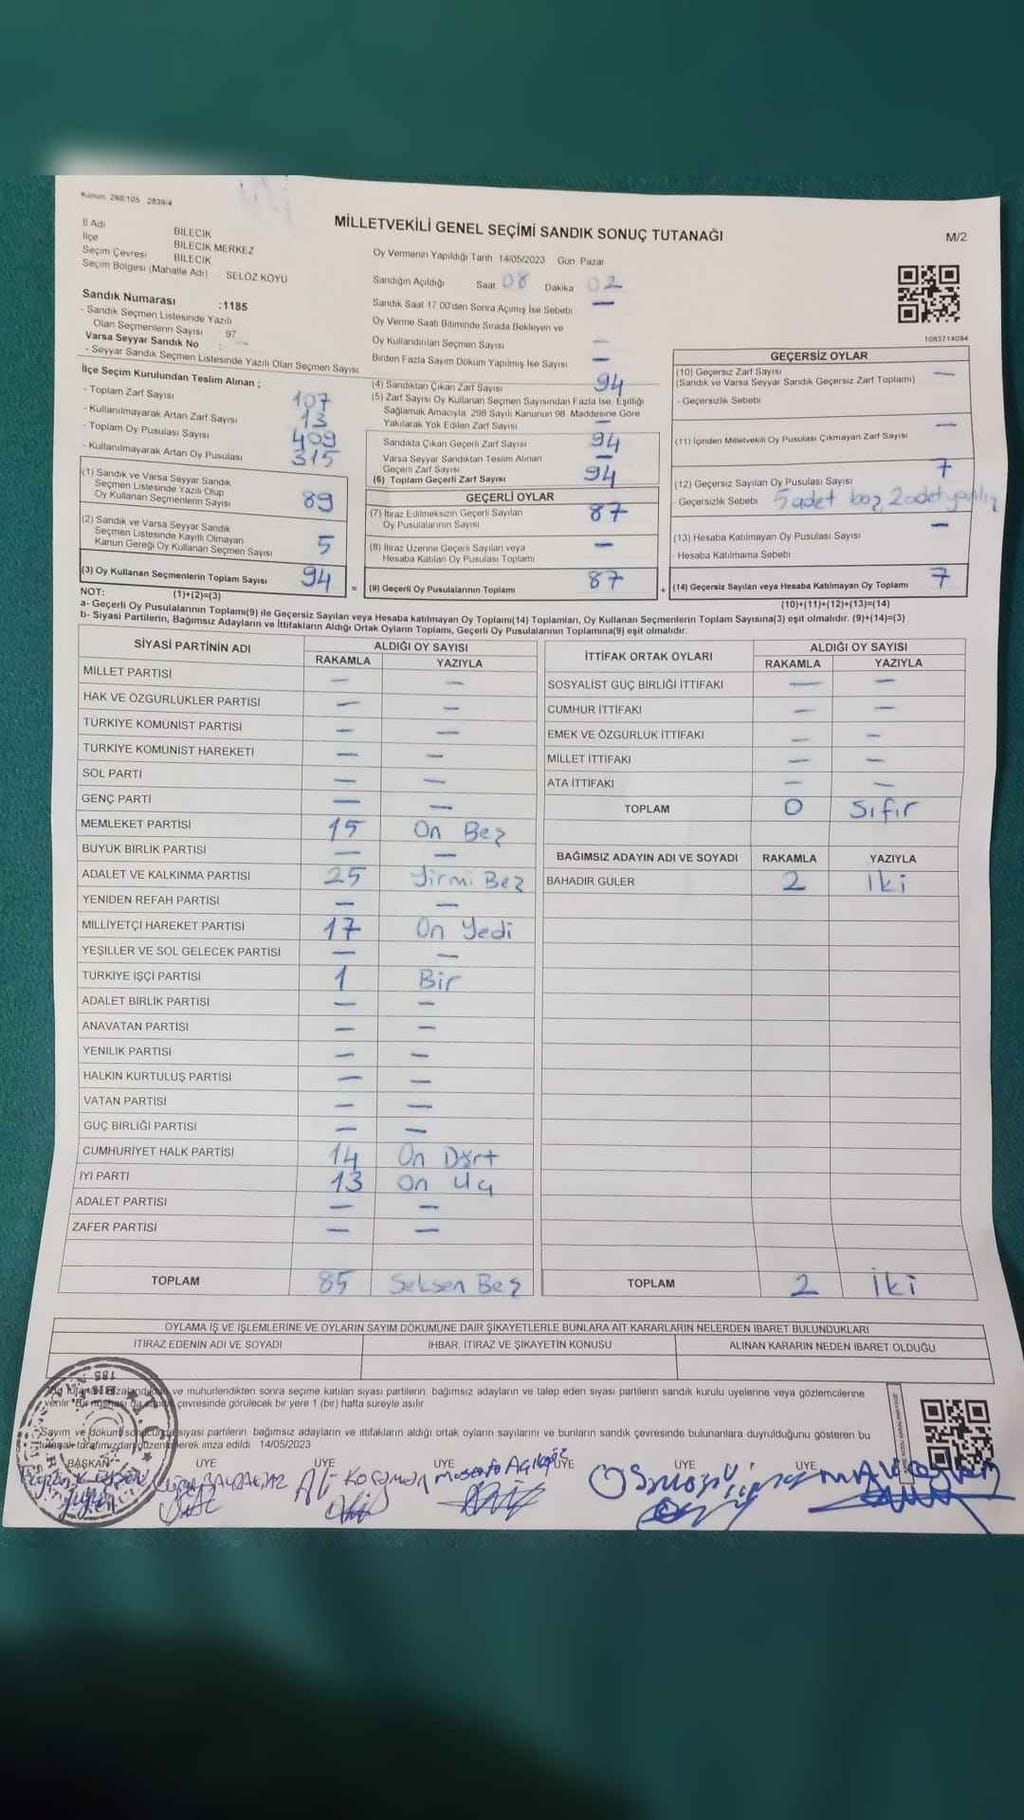 Kanun: 298/105 2839/4
MİLLETVEKİLİ GENEL SEÇİMİ SANDIK SONUÇ TUTANAĞI
M/2
İl Adı BİLECİK
İlçe BİLECİK MERKEZ
Seçim Çevresi BİLECİK
Seçim Bölgesi (Mahalle Adı) SELÖZ KÖYÜ
Sandık Numarası :1185
- Sandık Seçmen Listesinde Yazılı
Olan Seçmenlerin Sayısı 97
Varsa Seyyar Sandık No :
- Seyyar Sandık Seçmen Listesinde Yazılı Olan Seçmen Sayısı
İlçe Seçim Kurulundan Teslim Alınan ;
- Toplam Zarf Sayısı 107
- Kullanılmayarak Artan Zarf Sayısı 13
- Toplam Oy Pusulası Sayısı 409
- Kullanılmayarak Artan Oy Pusulası 315
(1) Sandık ve Varsa Seyyar Sandık
Seçmen Listesinde Yazılı Olup
Oy Kullanan Seçmenlerin Sayısı 89
(2) Sandık ve Varsa Seyyar Sandık
Seçmen Listesinde Kayıtlı Olmayan
Kanun Gereği Oy Kullanan Seçmen Sayısı 5
(3) Oy Kullanan Seçmenlerin Toplam Sayısı 94
Oy Vermenin Yapıldığı Tarih 14/05/2023 Gün: Pazar
Sandığın Açıldığı Saat 08 Dakika 02
Sandık Saat 17.00'den Sonra Açılmış İse Sebebi —
Oy Verme Saati Bitiminde Sırada Bekleyen ve
Oy Kullandırılan Seçmen Sayısı —
Birden Fazla Sayım Döküm Yapılmış İse Sayısı —
(4) Sandıktan Çıkan Zarf Sayısı 94
(5) Zarf Sayısı Oy Kullanan Seçmen Sayısından Fazla İse, Eşitliği
Sağlamak Amacıyla, 298 Sayılı Kanunun 98. Maddesine Göre
Yakılarak Yok Edilen Zarf Sayısı —
Sandıkta Çıkan Geçerli Zarf Sayısı 94
Varsa Seyyar Sandıktan Teslim Alınan
Geçerli Zarf Sayısı —
(6) Toplam Geçerli Zarf Sayısı 94
GEÇERLİ OYLAR
(7) İtiraz Edilmeksizin Geçerli Sayılan
Oy Pusulalarının Sayısı 87
(8) İtiraz Üzerine Geçerli Sayılan veya
Hesaba Katılan Oy Pusulası Toplamı —
= (9) Geçerli Oy Pusulalarının Toplamı 87
1083714094
GEÇERSİZ OYLAR
(10) Geçersiz Zarf Sayısı —
(Sandık ve Varsa Seyyar Sandık Geçersiz Zarf Toplamı)
- Geçersizlik Sebebi
(11) İçinden Milletvekili Oy Pusulası Çıkmayan Zarf Sayısı —
(12) Geçersiz Sayılan Oy Pusulası Sayısı 7
Geçersizlik Sebebi 5 adet boş, 2 adet
(13) Hesaba Katılmayan Oy Pusulası Sayısı —
- Hesaba Katılmama Sebebi
+ (14) Geçersiz Sayılan veya Hesaba Katılmayan Oy Toplamı 7
NOT: (1)+(2)=(3)
(10)+(11)+(12)+(13)=(14)
a- Geçerli Oy Pusulalarının Toplamı(9) ile Geçersiz Sayılan veya Hesaba katılmayan Oy Toplamı(14) Toplamları, Oy Kullanan Seçmenlerin Toplam Sayısına(3) eşit olmalıdır. (9)+(14)=(3)
b- Siyasi Partilerin, Bağımsız Adayların ve İttifakların Aldığı Ortak Oyların Toplamı, Geçerli Oy Pusulalarının Toplamına(9) eşit olmalıdır.
SİYASİ PARTİNİN ADI ALDIĞI OY SAYISI
RAKAMLA YAZIYLA
MİLLET PARTİSİ — —
HAK VE ÖZGÜRLÜKLER PARTİSİ — —
TÜRKİYE KOMÜNİST PARTİSİ — —
TÜRKİYE KOMÜNİST HAREKETİ — —
SOL PARTİ — —
GENÇ PARTİ — —
MEMLEKET PARTİSİ 15 On Beş
BÜYÜK BİRLİK PARTİSİ — —
ADALET VE KALKINMA PARTİSİ 25 Yirmi Beş
YENİDEN REFAH PARTİSİ — —
MİLLİYETÇİ HAREKET PARTİSİ 17 On Yedi
YEŞİLLER VE SOL GELECEK PARTİSİ — —
TÜRKİYE İŞÇİ PARTİSİ 1 Bir
ADALET BİRLİK PARTİSİ — —
ANAVATAN PARTİSİ — —
YENİLİK PARTİSİ — —
HALKIN KURTULUŞ PARTİSİ — —
VATAN PARTİSİ — —
GÜÇ BİRLİĞİ PARTİSİ — —
CUMHURİYET HALK PARTİSİ 14 On Dört
İYİ PARTİ 13 On Üç
ADALET PARTİSİ — —
ZAFER PARTİSİ — —
TOPLAM 85 Seksen Beş
İTTİFAK ORTAK OYLARI ALDIĞI OY SAYISI
RAKAMLA YAZIYLA
SOSYALİST GÜÇ BİRLİĞİ İTTİFAKI — —
CUMHUR İTTİFAKI — —
EMEK VE ÖZGÜRLÜK İTTİFAKI — —
MİLLET İTTİFAKI — —
ATA İTTİFAKI — —
TOPLAM 0 Sıfır
BAĞIMSIZ ADAYIN ADI VE SOYADI RAKAMLA YAZIYLA
BAHADIR GÜLER 2 İki
TOPLAM 2 İki
OYLAMA İŞ VE İŞLEMLERİNE VE OYLARIN SAYIM DÖKÜMÜNE DAİR ŞİKAYETLERLE BUNLARA AİT KARARLARIN NELERDEN İBARET BULUNDUKLARI
İTİRAZ EDENİN ADI VE SOYADI İHBAR, İTİRAZ VE ŞİKAYETİN KONUSU ALINAN KARARIN NEDEN İBARET OLDUĞU
ve mühürlendikten sonra seçime katılan siyasi partilerin, bağımsız adayların ve talep eden siyasi partilerin sandık kurulu üyelerine veya gözlemcilerine
verilir. Bir çevresinde görülecek bir yere 1 (bir) hafta süreyle asılır
Sayım ve döküm sonucunda siyasi partilerin, bağımsız adayların ve ittifakların aldığı ortak oyların sayılarını ve bunların sandık çevresinde bulunanlara duyrulduğunu gösteren bu
tutanak tarafımızdan düzenlenerek imza edildi. 14/05/2023
BAŞKAN ÜYE ÜYE ÜYE ÜYE ÜYE ÜYE
Ali Mustafa